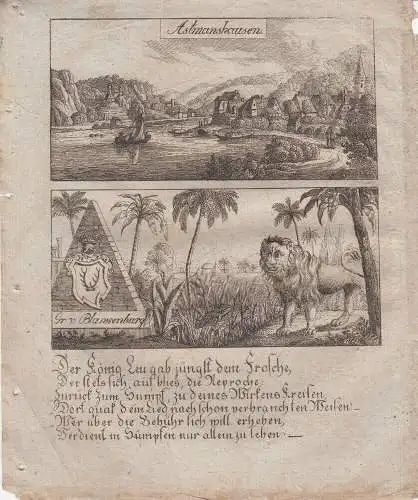 Asmanshausen.
Gr v Blanckenburg
Der König Leu gab jüngst dem Frosche,
Der stets sich auf blies, die Reproche:
Zurück zum Sumpf, zu deines Wirkens Kreisen,
Dort quak dein Lied nach schon verbrauchten Weisen —
Wer über die Gebühr sich will erheben,
Verdient in Sümpfen nur allein zu leben. —